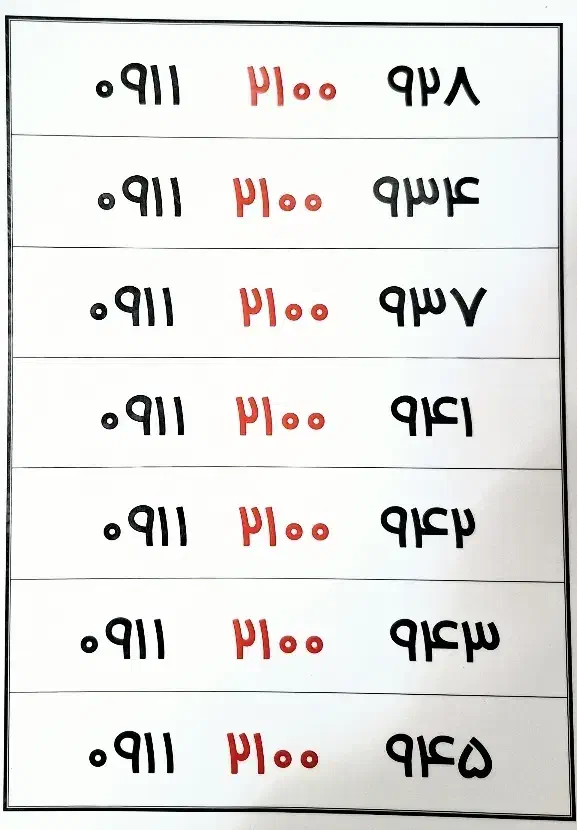 ۰۹۱۱ ۲۱۰۰ ۹۲۸
۰۹۱۱ ۲۱۰۰ ۹۳۴
۰۹۱۱ ۲۱۰۰ ۹۳۷
۰۹۱۱ ۲۱۰۰ ۹۴۱
۰۹۱۱ ۲۱۰۰ ۹۴۲
۰۹۱۱ ۲۱۰۰ ۹۴۳
۰۹۱۱ ۲۱۰۰ ۹۴۵